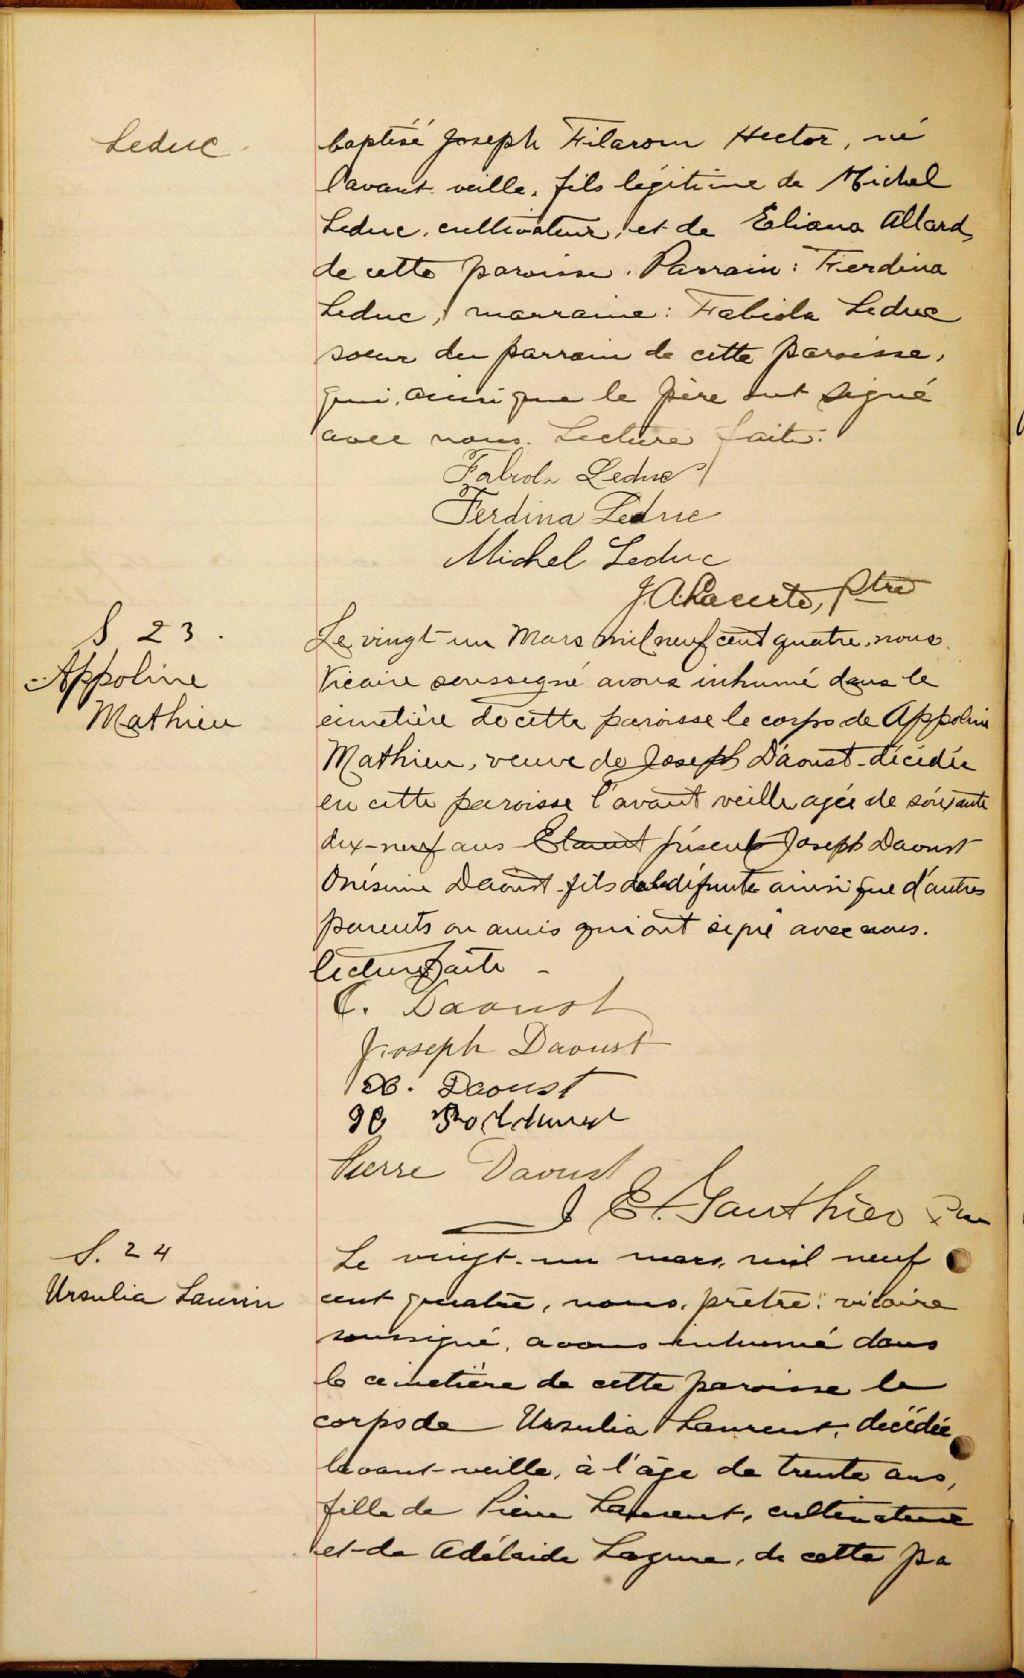 Leduc
baptisé Joseph Filarom Hector, né
l'avant-veille, fils légitime de Michel
Leduc, cultivateur, et de Eliana Allard,
de cette paroisse. Parrain: Ferdina
Leduc, marraine: Fabiola Leduc
soeur du parrain de cette paroisse,
qui, ainsi que le père ont signé
avec nous. Lecture faite.
Fabiola Leduc
Ferdina Leduc
Michel Leduc
J. A. Lacerte, Ptre
S 23.
Appoline
Mathieu
Le vingt-un Mars mil neuf cent quatre, nous
Vicaire soussigné avons inhumé dans le
cimetière de cette paroisse le corps de Appoline
Mathieu, veuve de Joseph D'aoust décédée
en cette paroisse l'avant veille agée de soixante
dix-neuf ans Etaient présents Joseph Daoust
Onésime Daoust fils de la défunte ainsi que d'autres
parents ou amis qui ont signé avec nous.
lecture faite -
Daoust
Joseph Daoust
Daoust
Pierre Daoust
J E. Gauthier
S. 24
Ursulia Laurin
Le vingt-un mars, mil neuf
cent quatre, nous, prêtre vicaire
soussigné, avons inhumé dans
le cimetière de cette paroisse le
corps de Ursulia Laurent, décédée
l'avant-veille, à l'âge de trente ans,
fille de Pierre Laurent, cultivateur
et de Adélaide, de cette pa